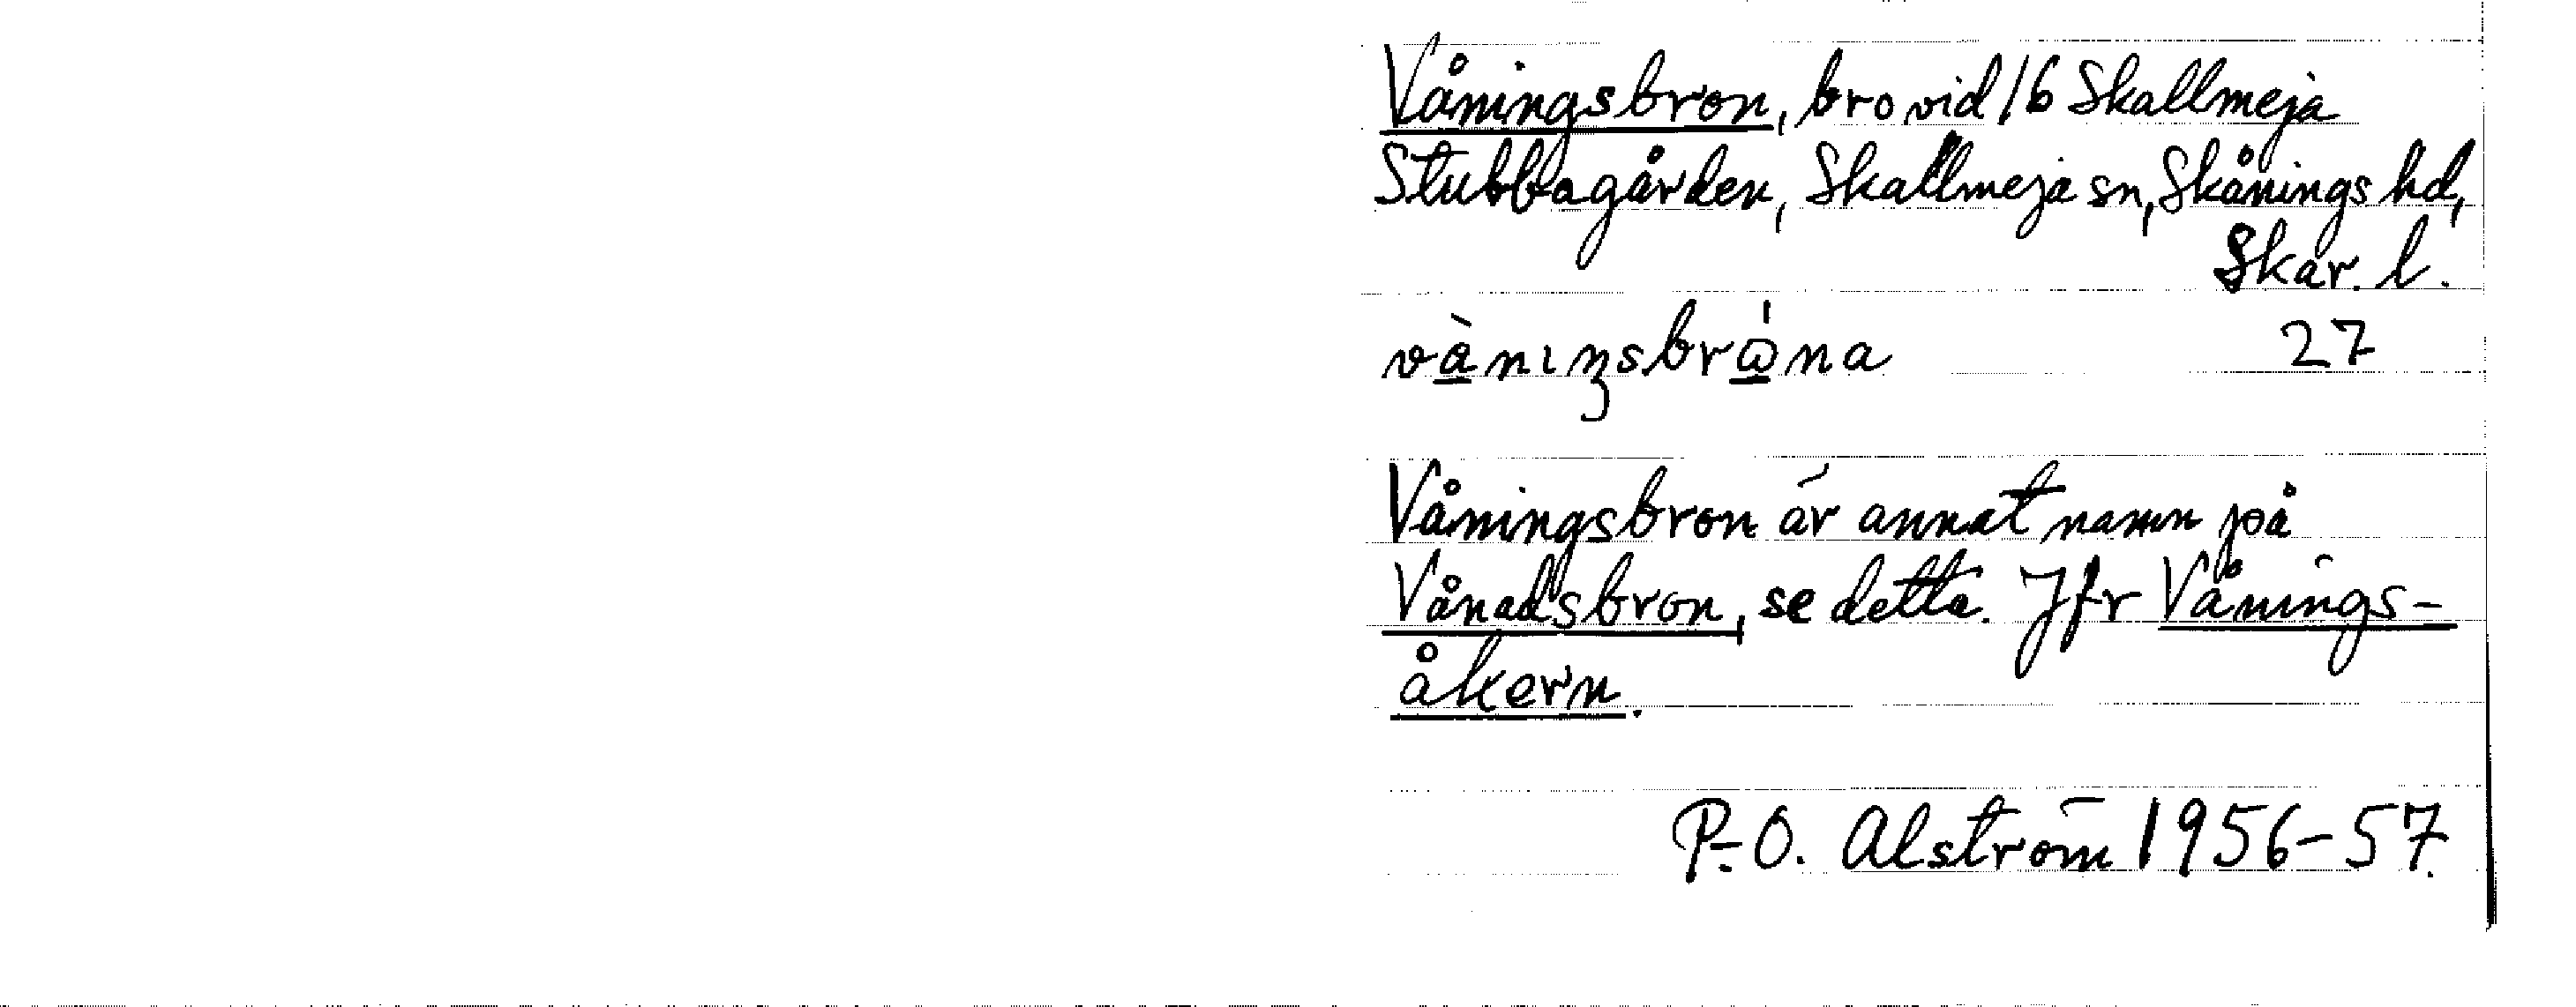 Våningsbron, bro vid 16 Skallmeja
Stubbagården, Skallmeja sn, Skånings hd,
Skar. l.
27
Våningsbron är annat namn på
Vånadsbron, se detta. Jfr Vånings-
åkern.
P.-O. Alström 1956-57.